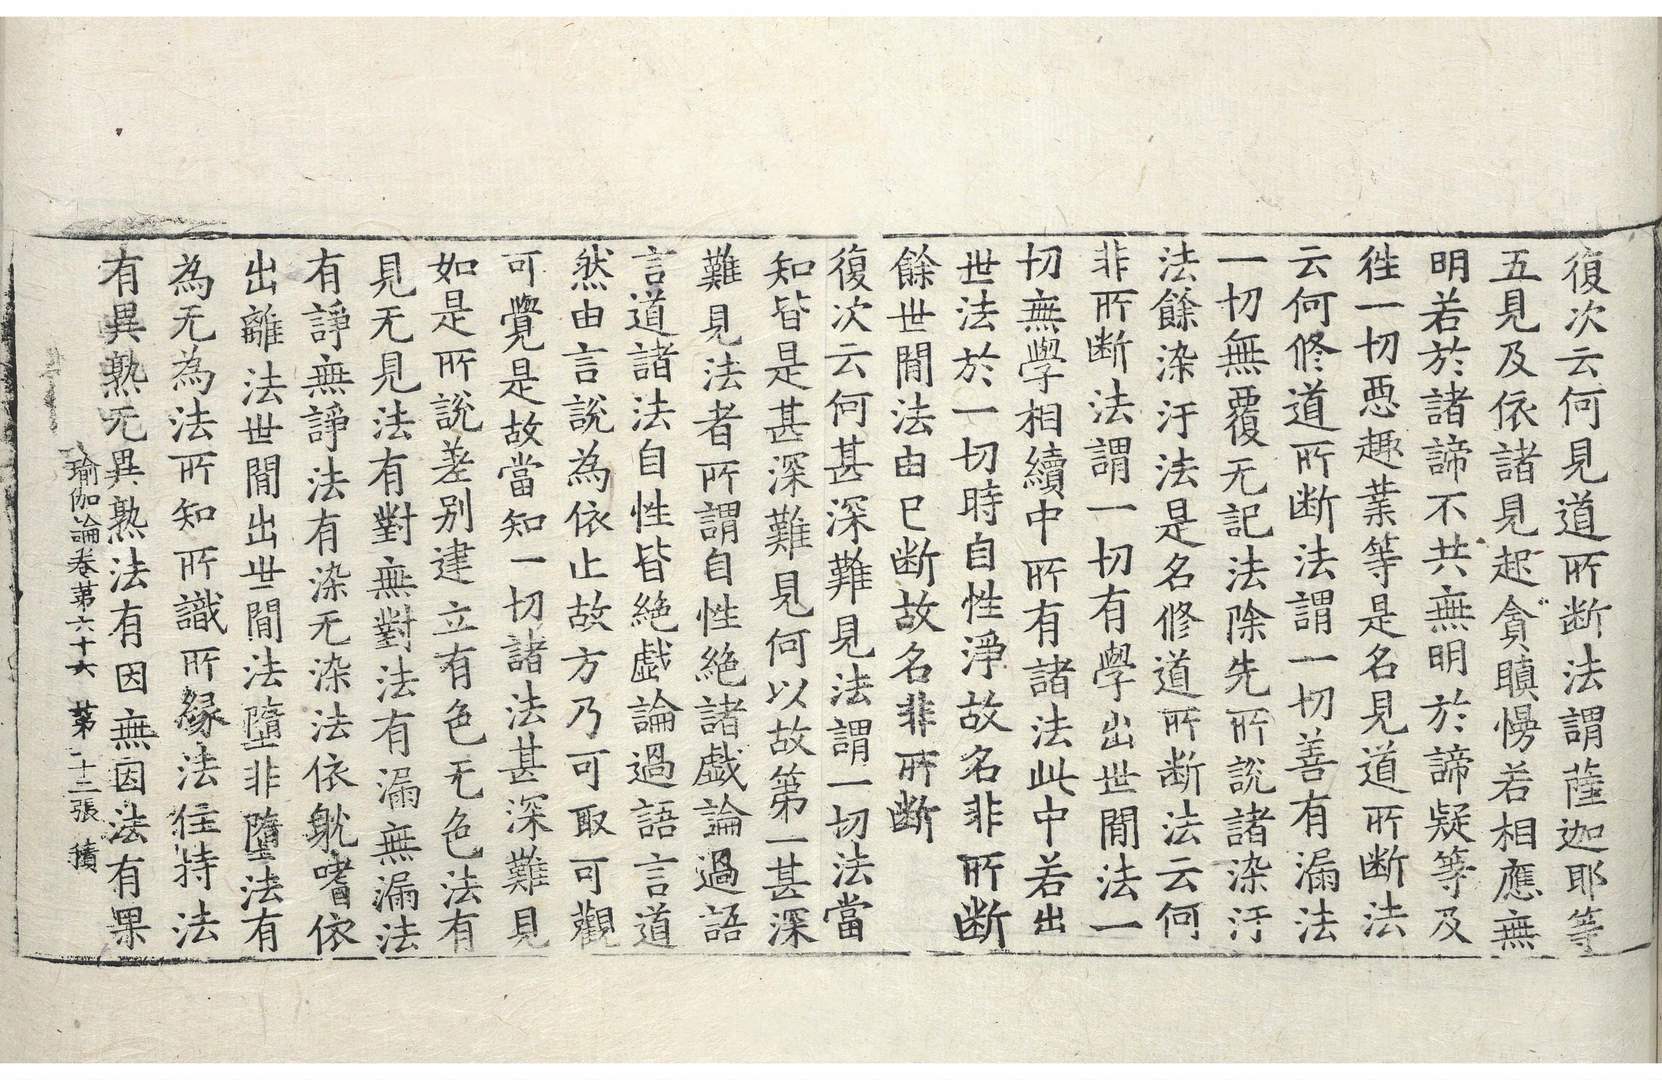 復次云何見道所断法謂薩迦耶等
五見及依諸見起貪瞋慢若相應無
明若於諸諦不共無明於諦疑等及
徃一切惡趣業等是名見道所断法
云何修道所断法謂一切善有漏法
一切無覆无記法除先所說諸染汙
法餘染汙法是名修道所断法云何
非所断法謂一切有學出世閒法一
切無學相續中所有諸法此中若出
世法於一切時自性淨故名非所断
餘世閒法由已断故名非所断
復次云何甚深難見法謂一切法當
知皆是甚深難見何以故第一甚深
難見法者所謂自性絶諸戱論過語
言道諸法自性皆絶戱論過語言道
然由言說為依止故方乃可取可觀
可覺是故當知一切諸法甚深難見
如是所說差别建立有色无色法有
見无見法有對無對法有漏無漏法
有諍無諍法有染无染法依躭嗜依
出離法世閒出世閒法墮非墮法有
為无為法所知所識所縁法住持法
有異熟无異熟法有因無因法有果
瑜伽論卷第六十六 第二十三張 積